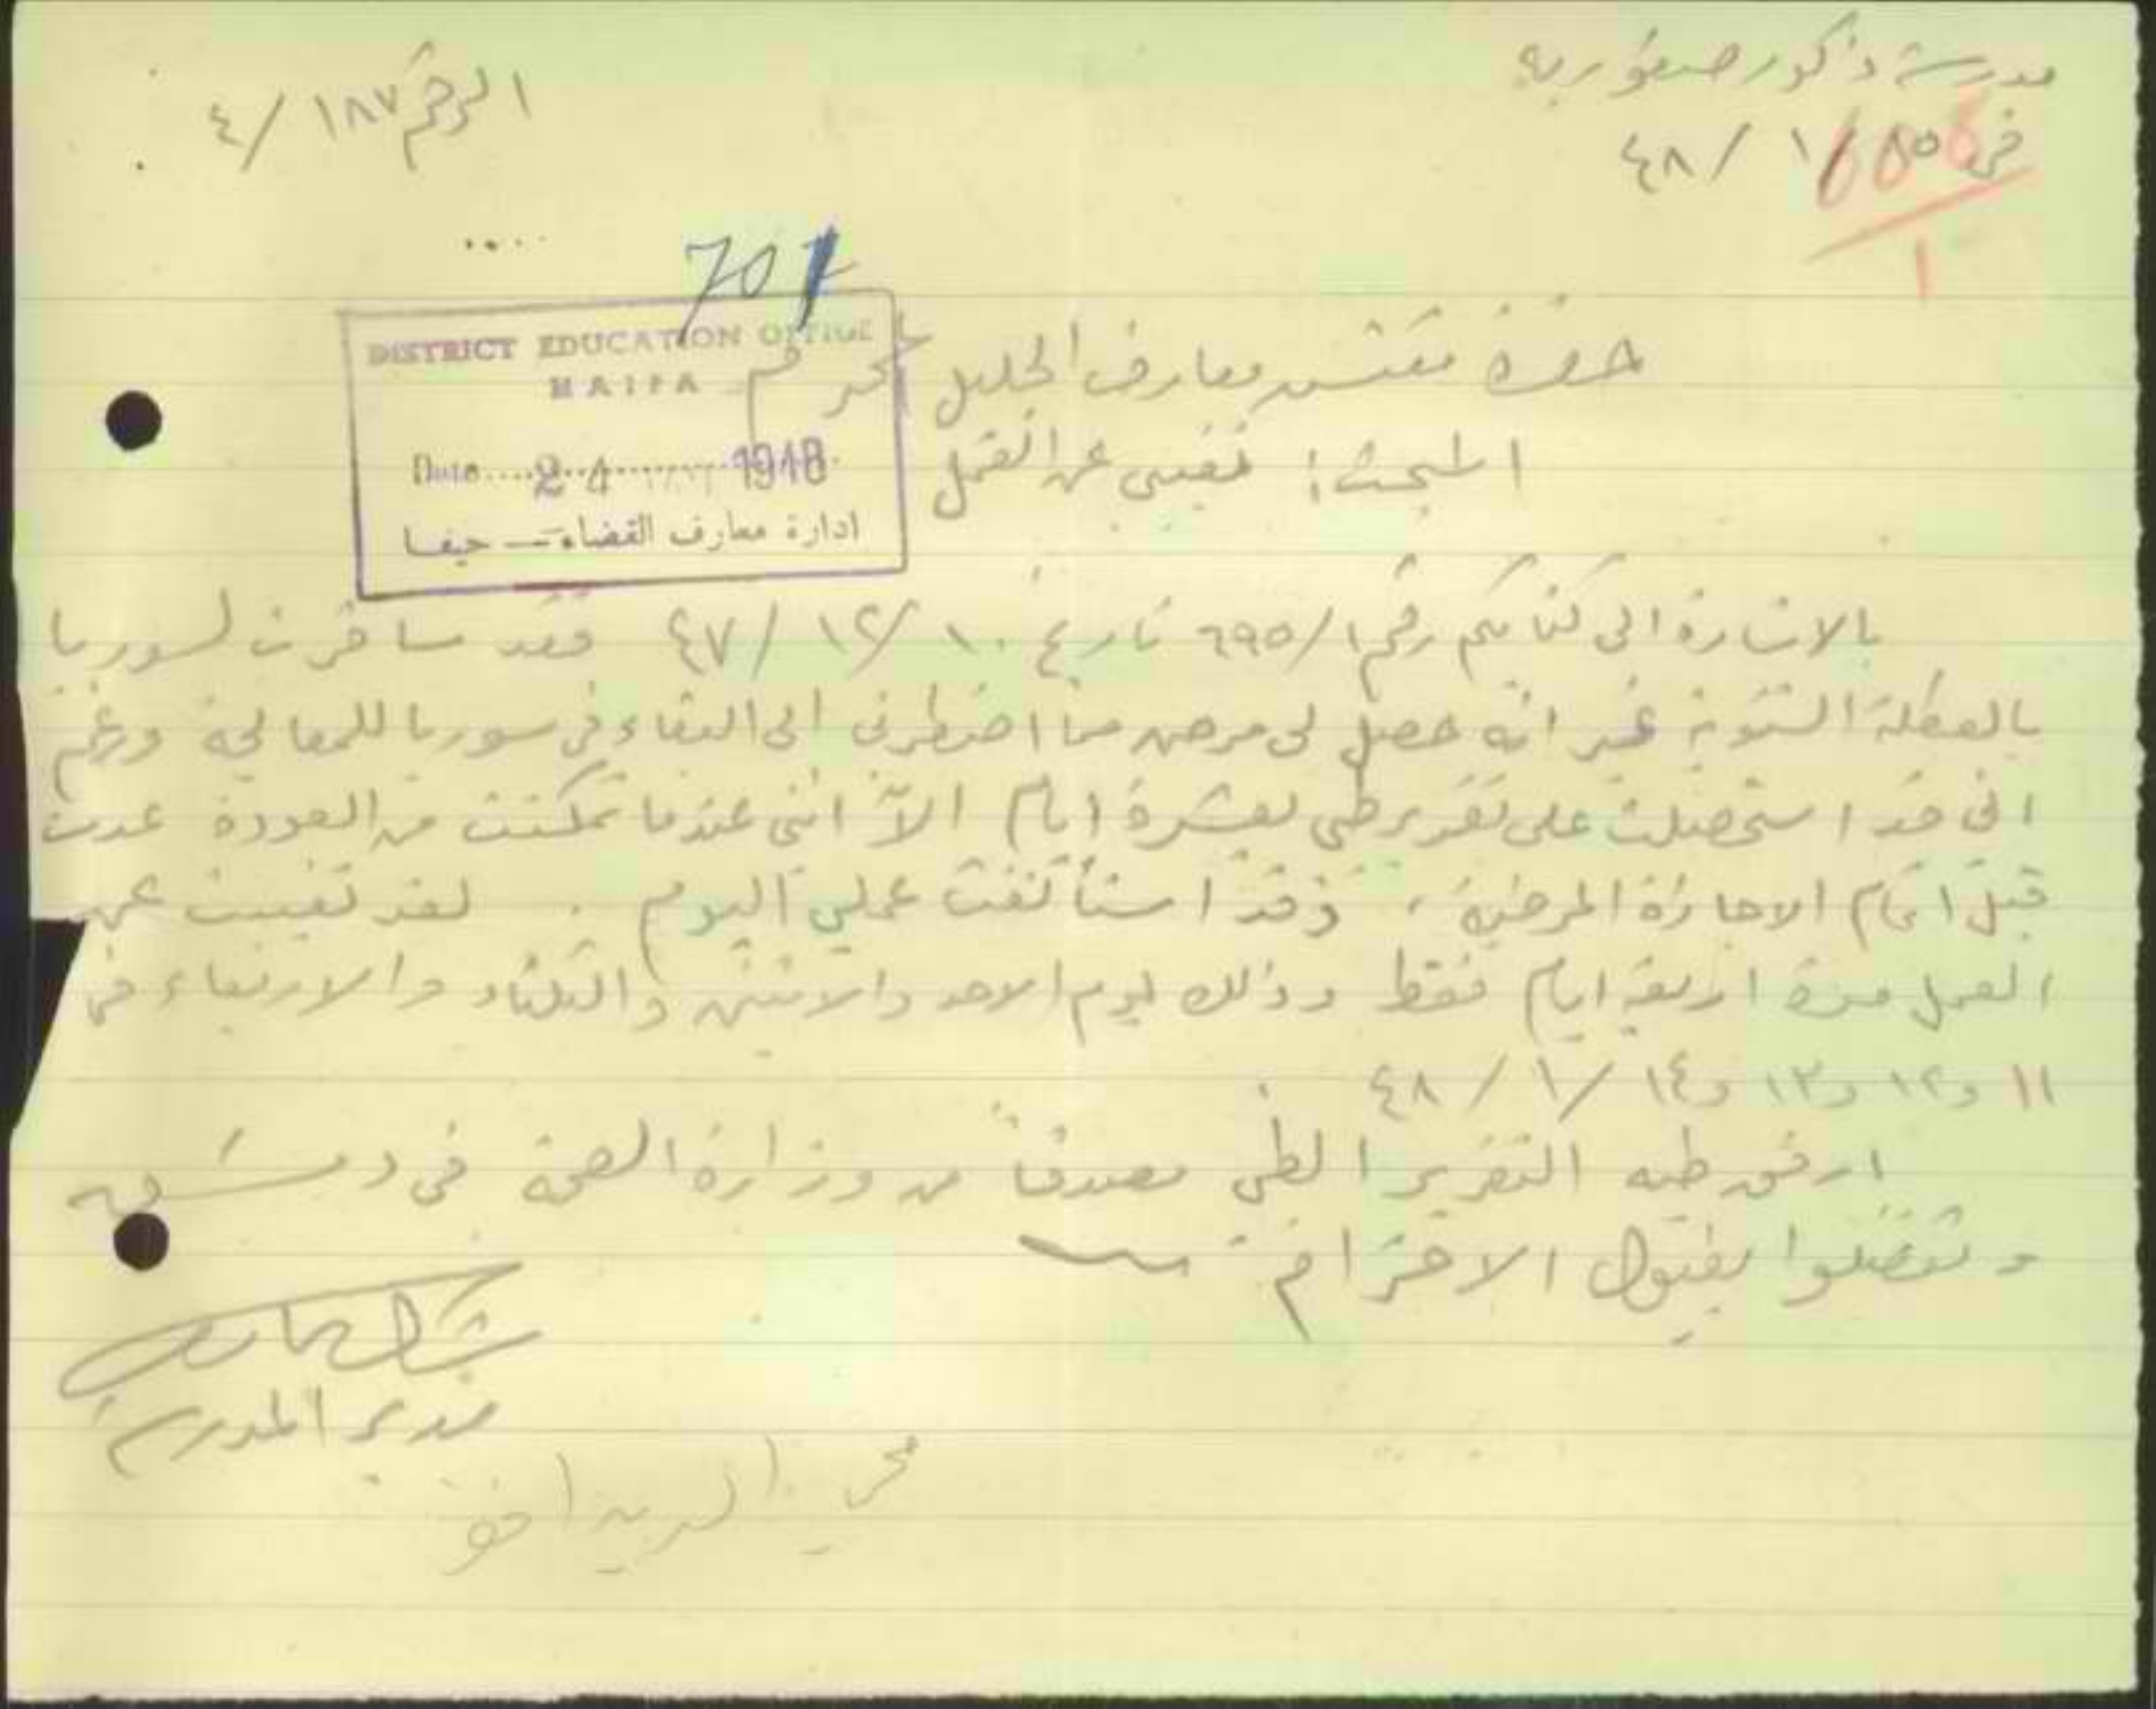 مدرسة ذكور صفوريه
الرقم ١٨٧ /٤
في ١٥ /١ /٤٨
701
DISTRICT EDUCATION OFFICE
HAIFA
Date.... 24 ... 1948
ادارة معارف القضاء – حيفا
حضرة مفتش معارف الجليل المحترم
المبحث: تغيبي عن العمل
بالاشارة الى كتابكم رقم ١/ ٦٩٥ تاريخ ١٠ /١٢/ ٤٧ فقد سافرت لسوريا
بالعطلة الشتوية غير انه حصل لي مرض مما اضطرني الى البقاء في سوريا للمعالجة ورغم
اني قد استحصلت على تقرير طبي بعشرة ايام الاّ انني عندما تمكنت من العودة عدت
قبل اتمام الاجازة المرضية، وقد استأنفت عملي اليوم . لقد تغيبت عن
العمل مدة اربعة ايام فقط وذلك يوم الاحد والاثنين والثلثاء والاربعاء في
١١ و١٢ و١٣ و١٤ /١ /٤٨ .
ارفق طيه التقرير الطبي مصدقاً من وزارة الصحة في دمشق
وتفضلوا بقبول الاحترام
مدير المدرسة
محي الدين